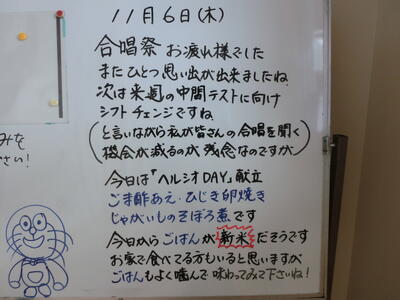 11月6日(木)
合唱祭 お疲れ様でした
またひとつ思い出が出来ましたね
次は来週の中間テストに向け
シフトチェンジですね
(と言いながら私が皆さんの合唱を聞く
機会が減るのが、残念なのですが)
今日は「ヘルシオDAY」献立
ごま酢あえ・ひじき卵焼き
じゃがいものそぼろ煮です
今日からごはんが新米だそうです
お家で食べてる方もいると思いますが
ごはんもよく噛んで味わってみて下さいね!
みを
さい!